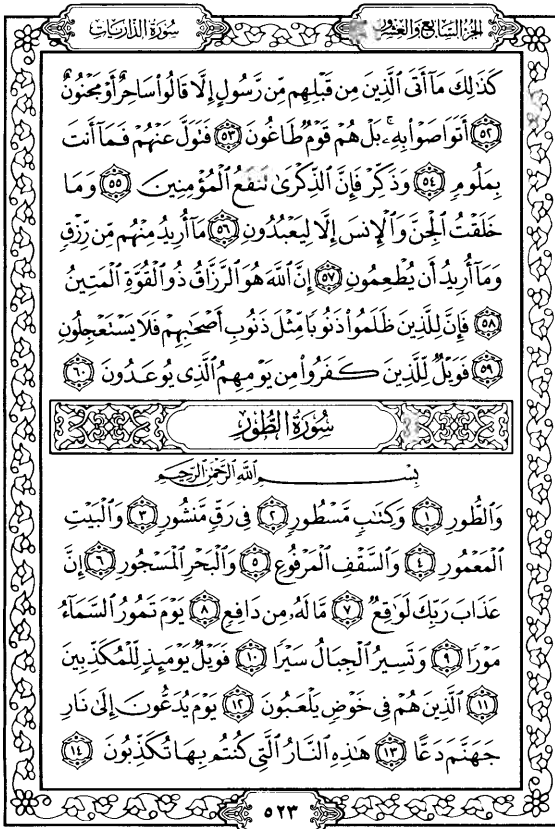 الجزء السابع والعشرون
سورة الذاريات
كَذَٰلِكَ مَآ أَتَى ٱلَّذِينَ مِن قَبْلِهِم مِّن رَّسُولٍ إِلَّا قَالُوا۟ سَاحِرٌ أَوْ مَجْنُونٌ
﴿٥٢﴾ أَتَوَاصَوْا۟ بِهِۦ ۚ بَلْ هُمْ قَوْمٌ طَاغُونَ ﴿٥٣﴾ فَتَوَلَّ عَنْهُمْ فَمَآ أَنتَ
بِمَلُومٍ ﴿٥٤﴾ وَذَكِّرْ فَإِنَّ ٱلذِّكْرَىٰ تَنفَعُ ٱلْمُؤْمِنِينَ ﴿٥٥﴾ وَمَا
خَلَقْتُ ٱلْجِنَّ وَٱلْإِنسَ إِلَّا لِيَعْبُدُونِ ﴿٥٦﴾ مَآ أُرِيدُ مِنْهُم مِّن رِّزْقٍ
وَمَآ أُرِيدُ أَن يُطْعِمُونِ ﴿٥٧﴾ إِنَّ ٱللَّهَ هُوَ ٱلرَّزَّاقُ ذُو ٱلْقُوَّةِ ٱلْمَتِينُ
﴿٥٨﴾ فَإِنَّ لِلَّذِينَ ظَلَمُوا۟ ذَنُوبًا مِّثْلَ ذَنُوبِ أَصْحَٰبِهِمْ فَلَا يَسْتَعْجِلُونِ
﴿٥٩﴾ فَوَيْلٌ لِّلَّذِينَ كَفَرُوا۟ مِن يَوْمِهِمُ ٱلَّذِى يُوعَدُونَ ﴿٦٠﴾
سُورَةُ الطُّورِ
بِسْمِ ٱللَّهِ ٱلرَّحْمَٰنِ ٱلرَّحِيمِ
وَٱلطُّورِ ﴿١﴾ وَكِتَٰبٍ مَّسْطُورٍ ﴿٢﴾ فِى رَقٍّ مَّنشُورٍ ﴿٣﴾ وَٱلْبَيْتِ
ٱلْمَعْمُورِ ﴿٤﴾ وَٱلسَّقْفِ ٱلْمَرْفُوعِ ﴿٥﴾ وَٱلْبَحْرِ ٱلْمَسْجُورِ ﴿٦﴾ إِنَّ
عَذَابَ رَبِّكَ لَوَٰقِعٌ ﴿٧﴾ مَّا لَهُۥ مِن دَافِعٍ ﴿٨﴾ يَوْمَ تَمُورُ ٱلسَّمَآءُ
مَوْرًا ﴿٩﴾ وَتَسِيرُ ٱلْجِبَالُ سَيْرًا ﴿١٠﴾ فَوَيْلٌ يَوْمَئِذٍ لِّلْمُكَذِّبِينَ
﴿١١﴾ ٱلَّذِينَ هُمْ فِى خَوْضٍ يَلْعَبُونَ ﴿١٢﴾ يَوْمَ يُدَعُّونَ إِلَىٰ نَارِ
جَهَنَّمَ دَعًّا ﴿١٣﴾ هَٰذِهِ ٱلنَّارُ ٱلَّتِى كُنتُم بِهَا تُكَذِّبُونَ ﴿١٤﴾
٥٢٣